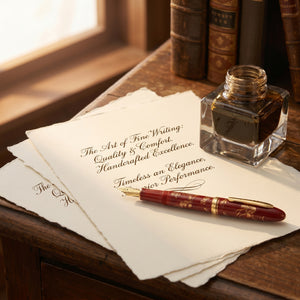 The Art of Fine Writing:
Quality & Comfort.
Handcrafted Excellence.
Timeless an Elegance.
Performance.
The